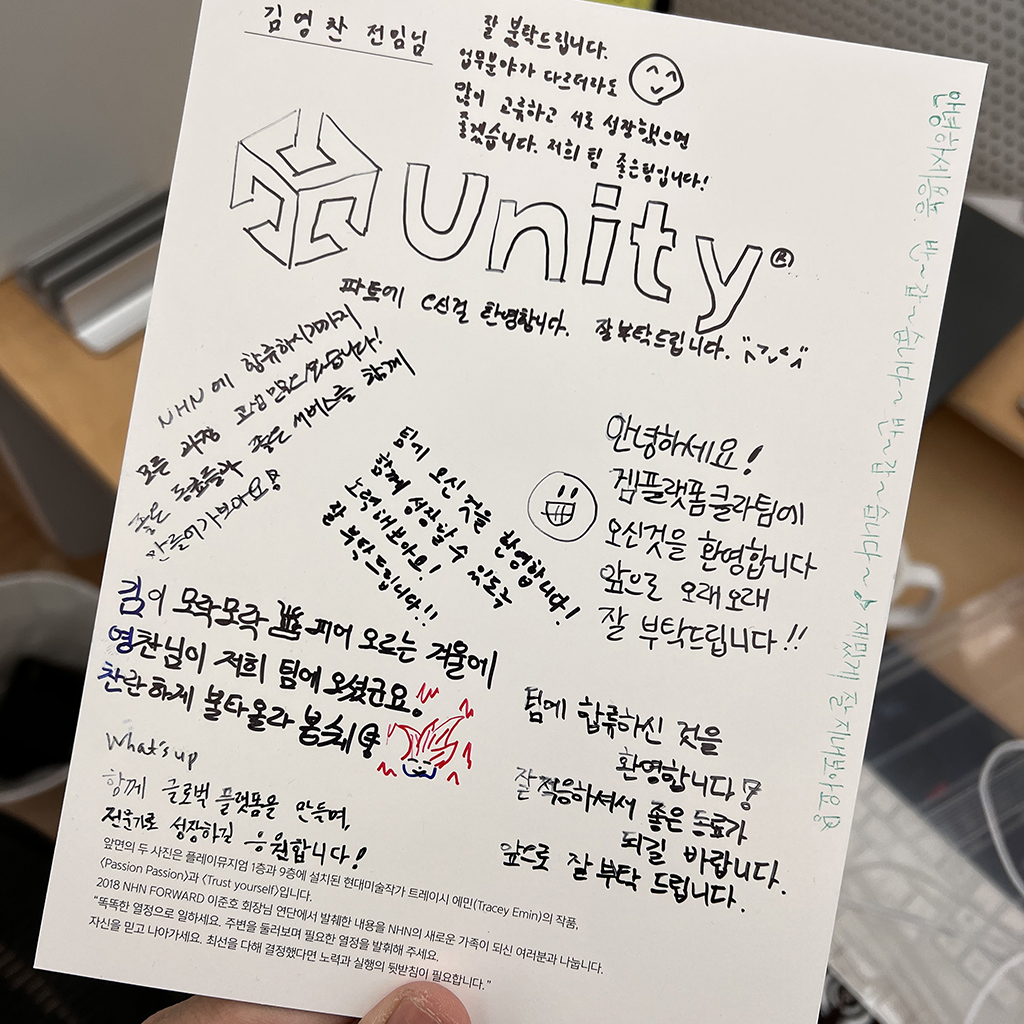 김영찬 전임님
잘 부탁드립니다.
업무분야가 다르더라도
많이 교류하고 서로 성장했으면
좋겠습니다. 저희 팀 좋은팀입니다!
unity®
파트에 오신걸 환영합니다. 잘 부탁드립니다.
NHN에 합류하시기까지
모든 과정 고생 많으셨습니다!
좋은 동료들과 좋은 서비스를 함께
만들어가보아요!
팀에 오신 것을 환영합니다!
함께 성장할 수 있도록
노력해보아요!
잘 부탁드립니다!!
안녕하세요!
겜플랫폼클라팀에
오신것을 환영합니다
앞으로 오래오래
잘 부탁드립니다!!
김이 모락모락 피어 오르는 겨울에
영찬님이 저희 팀에 오셨군요!
찬란하게 불타올라 봅시다
What's up
함께 글로벌 플랫폼을 만들며,
전문가로 성장하길 응원합니다!
팀에 합류하신 것을
환영합니다!
잘 적응하셔서 좋은 동료가
되길 바랍니다.
앞으로 잘 부탁 드립니다.
안녕하세용용. 반~갑~습니다~반~갑~습니다~♪ 재밌게 잘 지내보아요!
앞면의 두 사진은 플레이뮤지엄 1층과 9층에 설치된 현대미술작가 트레이시 에민(Tracey Emin)의 작품,
〈Passion Passion〉과 〈Trust yourself〉입니다.
2018 NHN FORWARD 이준호 회장님 연단에서 발췌한 내용을 NHN의 새로운 가족이 되신 여러분과 나눕니다.
"똑똑한 열정으로 일하세요. 주변을 둘러보며 필요한 열정을 발휘해 주세요.
자신을 믿고 나아가세요. 최선을 다해 결정했다면 노력과 실행의 뒷받침이 필요합니다."